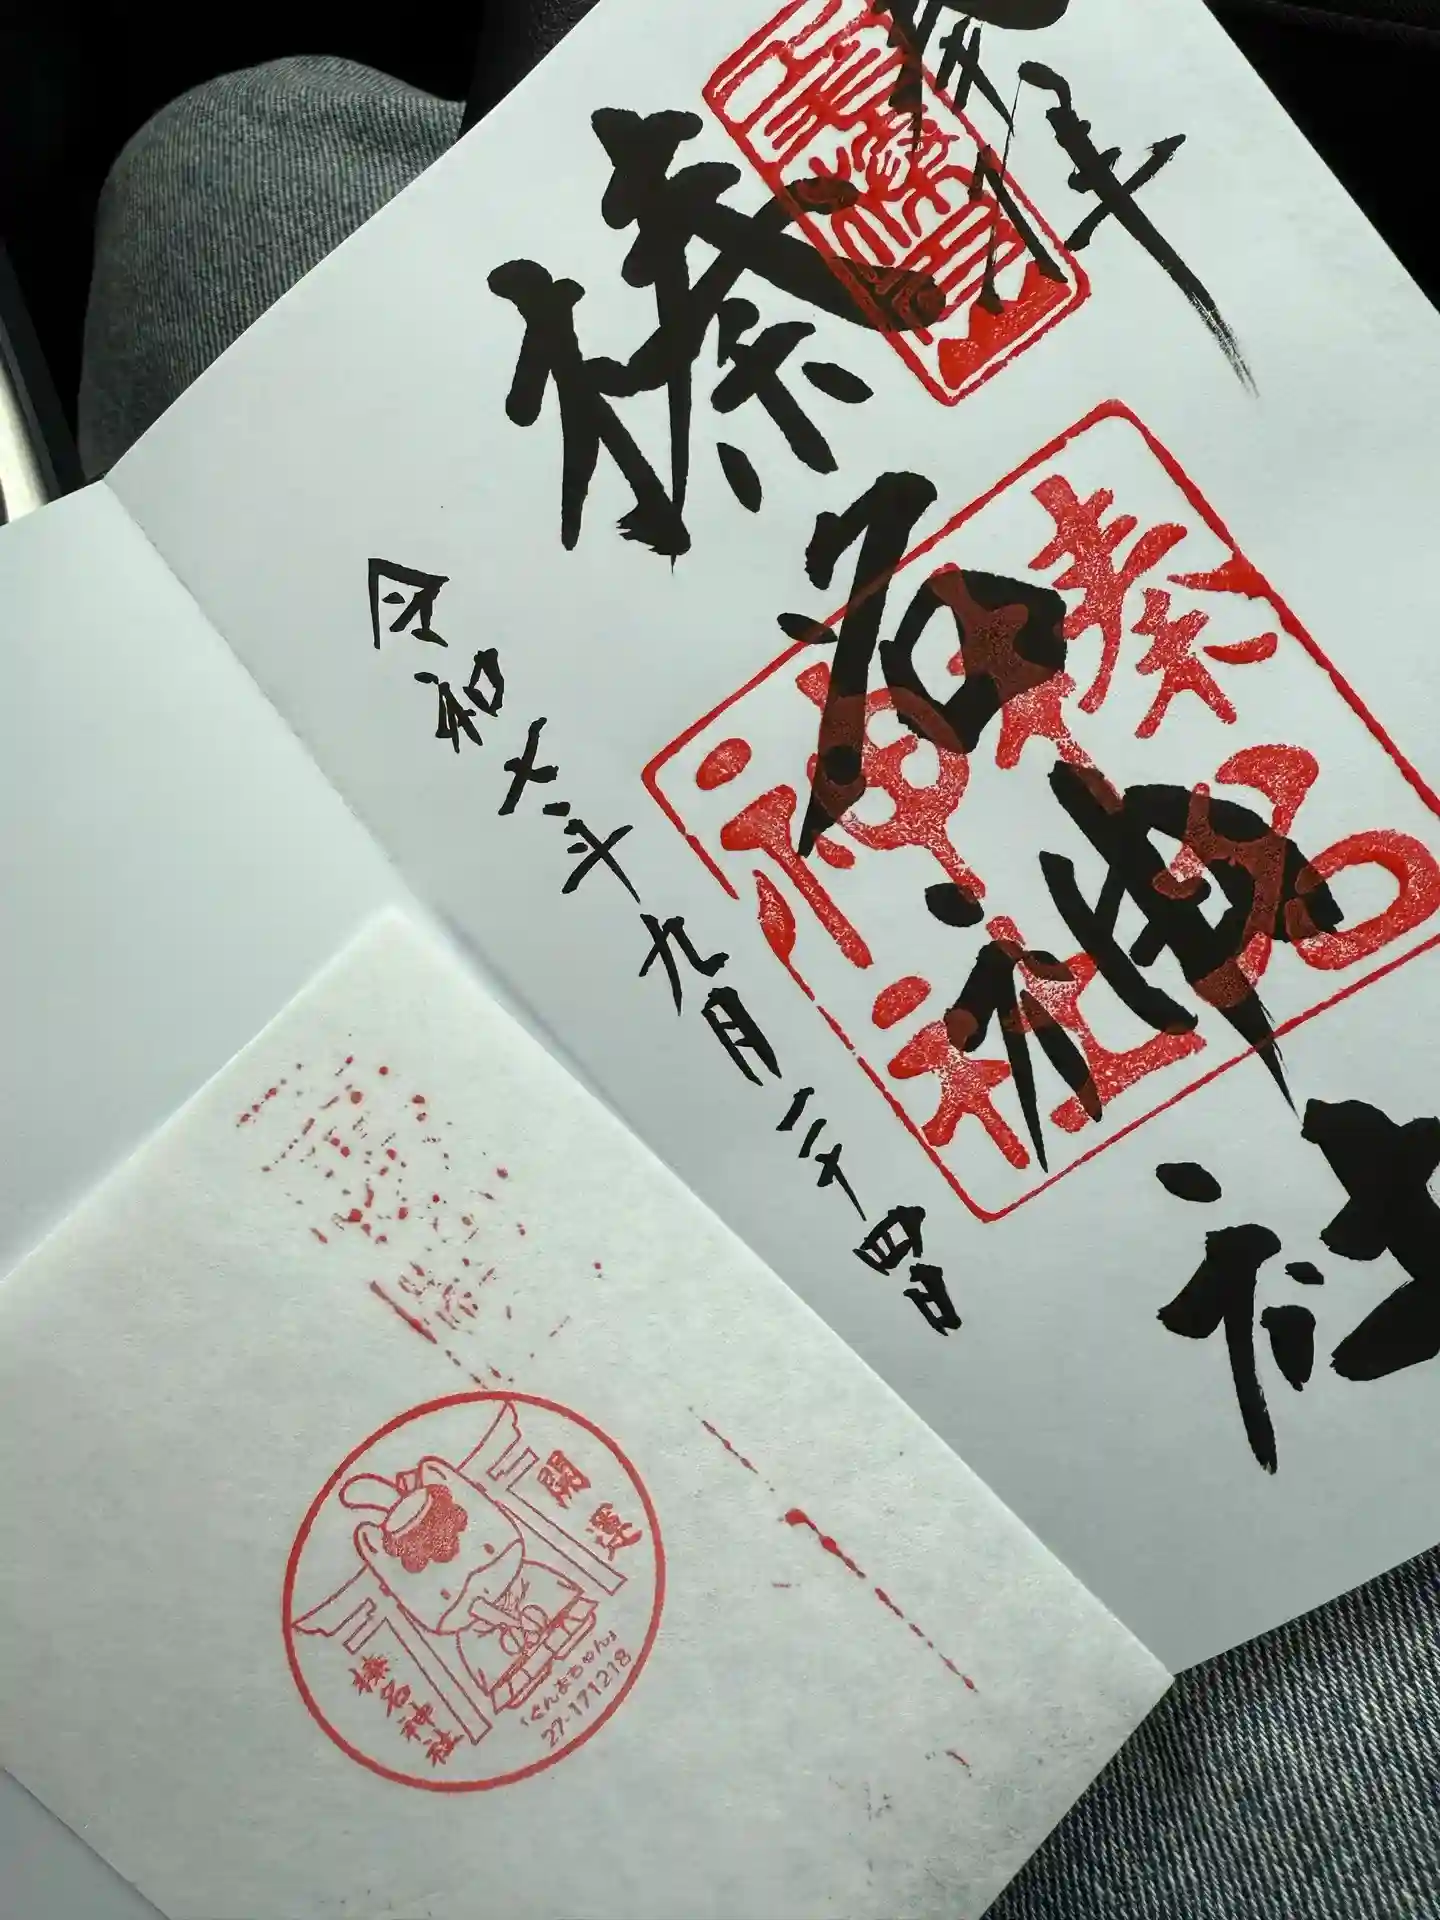 奉拝
榛名神社
令和六年九月二十四日
榛名
神社
開運
榛名神社
ぐんまちゃん
27-171218